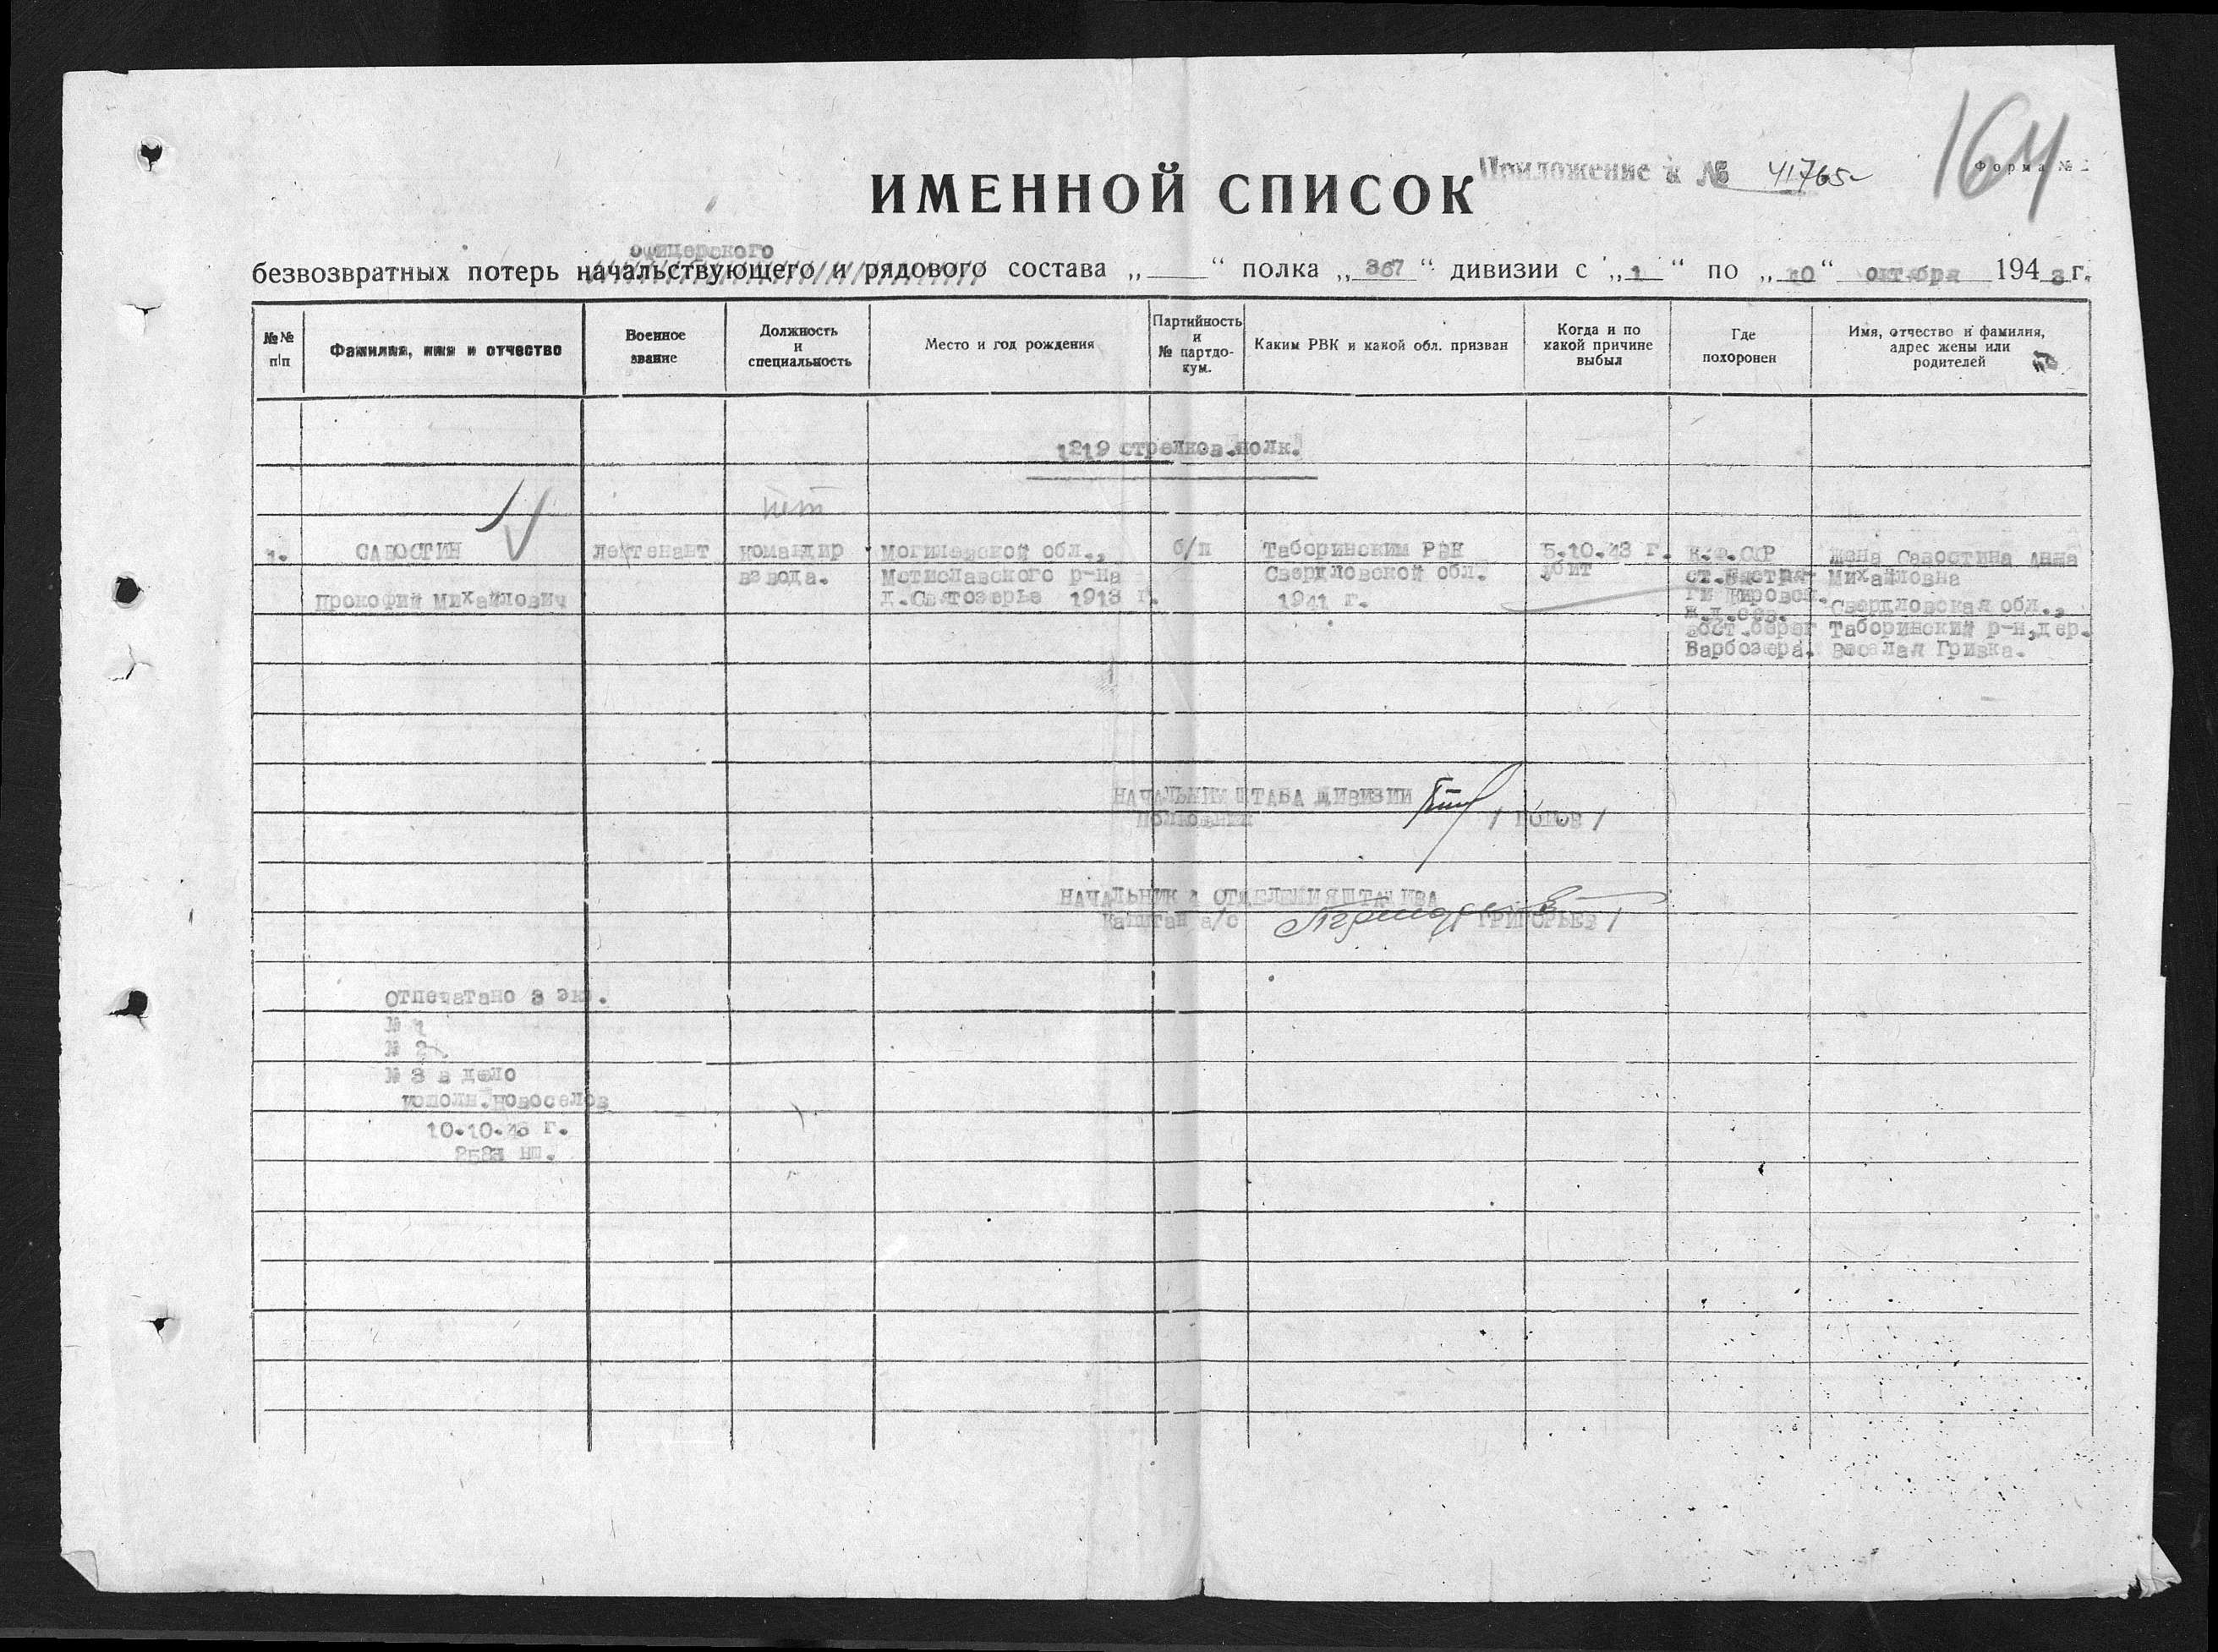 164
Приложение к № 41765
Форма №
ИМЕННОЙ СПИСОК
офицерского
безвозвратных потерь начальствующего и рядового состава „ “ полка „367“ дивизии с „1“ по „10“ октября 1943 г.
№№ п/п
Фамилия, имя и отчество
Военное звание
Должность и специальность
Место и год рождения
Партийность и № партдокум.
Каким РВК и какой обл. призван
Когда и по какой причине выбыл
Где похоронен
Имя, отчество и фамилия, адрес жены или родителей
1219 стрелков.полк.
1.
САВОСТИН
Прокофий Михайлович
лейтенант
командир
взвода.
Могилевской обл.,
Мстиславского р-на
д.Святозерье 1913 г.
б/п
Таборинским РВК
Свердловской обл.
1941 г.
5.10.43 г.
убит
К.Ф.ССР
Кировск.
ж.д.сев.
вост.берег
Варбозера.
жена Савостина Анна
Михайловна
Свердловская обл.,
Таборинский р-н,дер.
Веселая Гривка.
НАЧАЛЬНИК ШТАБА ДИВИЗИИ
ПОЛКОВНИК / ПОПОВ /
НАЧАЛЬНИК 4 ОТДЕЛЕНИЯ ШТАДИВА
Капитан а/с ГРИГОРЬЕВ /
Отпечатано 3 экз.
№ 1
№ 2
№ 3 в дело
исполн.Новоселов
10.10.43 г.